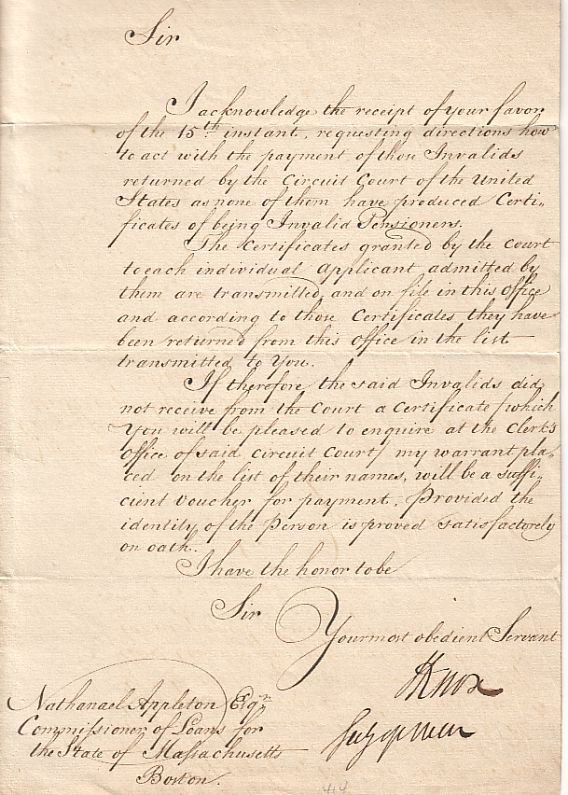 Sir
I acknowledge the receipt of your favor
of the 15th instant, requesting directions how
to act with the payment of thou Invalids
returned by the Circuit Court of the United
States as none of them have produced Certi,,
ficates of being Invalid Pensioners.
The Certificates granted by the Court
to each individual applicant admitted by
them are transmitted, and on file in this Office
and according to those Certificates they have
been returned from this Office in the list
transmitted to You.
If therefore the said Invalids did
not receive from the Court a Certificate /which
You will be pleased to enquire at the Clerk's
Office of said Circuit Court/ my warrant pla,,
ced on the list of their names, will be a suffi,,
cient voucher for payment, Provided the
identity of the Person is proved satisfactorily
on oath.
I have the honor to be
Sir
Your most obedient Servant
HKnox
Secy of War
Nathanael Appleton Esqr
Commissioner of Loans for
the State of Massachusetts
Boston.